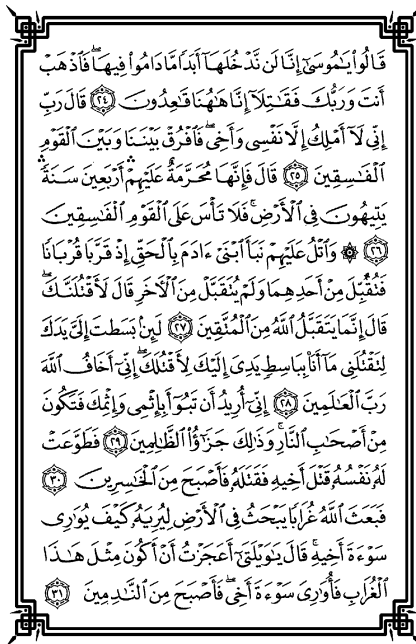 قَالُوا۟ يَـٰمُوسَىٰٓ إِنَّا لَن نَّدْخُلَهَآ أَبَدًا مَّا دَامُوا۟ فِيهَا ۖ فَٱذْهَبْ
أَنتَ وَرَبُّكَ فَقَـٰتِلَآ إِنَّا هَـٰهُنَا قَـٰعِدُونَ ٢٤ قَالَ رَبِّ
إِنِّى لَآ أَمْلِكُ إِلَّا نَفْسِى وَأَخِى ۖ فَٱفْرُقْ بَيْنَنَا وَبَيْنَ ٱلْقَوْمِ
ٱلْفَـٰسِقِينَ ٢٥ قَالَ فَإِنَّهَا مُحَرَّمَةٌ عَلَيْهِمْ ۛ أَرْبَعِينَ سَنَةً ۛ
يَتِيهُونَ فِى ٱلْأَرْضِ ۚ فَلَا تَأْسَ عَلَى ٱلْقَوْمِ ٱلْفَـٰسِقِينَ
٢٦ ۞ وَٱتْلُ عَلَيْهِمْ نَبَأَ ٱبْنَىْ ءَادَمَ بِٱلْحَقِّ إِذْ قَرَّبَا قُرْبَانًا
فَتُقُبِّلَ مِنْ أَحَدِهِمَا وَلَمْ يُتَقَبَّلْ مِنَ ٱلْـَٔاخَرِ قَالَ لَأَقْتُلَنَّكَ ۖ
قَالَ إِنَّمَا يَتَقَبَّلُ ٱللَّهُ مِنَ ٱلْمُتَّقِينَ ٢٧ لَئِنۢ بَسَطتَ إِلَىَّ يَدَكَ
لِتَقْتُلَنِى مَآ أَنَا۠ بِبَاسِطٍ يَدِىَ إِلَيْكَ لِأَقْتُلَكَ ۖ إِنِّىٓ أَخَافُ ٱللَّهَ
رَبَّ ٱلْعَـٰلَمِينَ ٢٨ إِنِّىٓ أُرِيدُ أَن تَبُوٓأَ بِإِثْمِى وَإِثْمِكَ فَتَكُونَ
مِنْ أَصْحَـٰبِ ٱلنَّارِ ۚ وَذَٰلِكَ جَزَٰٓؤُا۟ ٱلظَّـٰلِمِينَ ٢٩ فَطَوَّعَتْ
لَهُۥ نَفْسُهُۥ قَتْلَ أَخِيهِ فَقَتَلَهُۥ فَأَصْبَحَ مِنَ ٱلْخَـٰسِرِينَ ٣٠
فَبَعَثَ ٱللَّهُ غُرَابًا يَبْحَثُ فِى ٱلْأَرْضِ لِيُرِيَهُۥ كَيْفَ يُوَٰرِى
سَوْءَةَ أَخِيهِ ۚ قَالَ يَـٰوَيْلَتَىٰٓ أَعَجَزْتُ أَنْ أَكُونَ مِثْلَ هَـٰذَا
ٱلْغُرَابِ فَأُوَٰرِىَ سَوْءَةَ أَخِى ۖ فَأَصْبَحَ مِنَ ٱلنَّـٰدِمِينَ ٣١